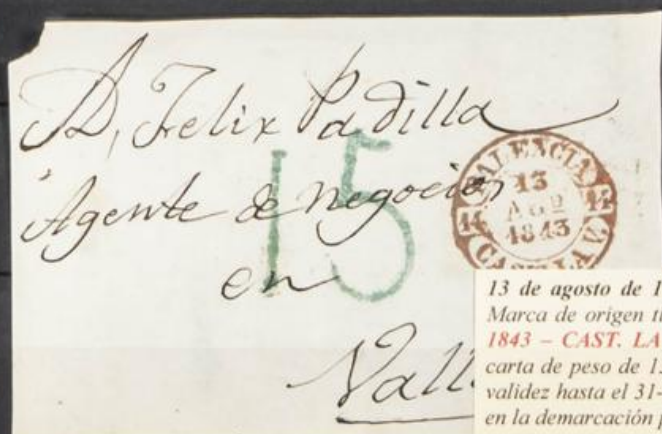 D. Felix Padilla
Agente de negocios
en
Vall
15
PALENCIA
13
AGO
1843
14
14
CAST. LA V.
13 de agosto de 1
Marca de origen ti
1843 – CAST. LA
carta de peso de 1
validez hasta el 31-
en la demarcación p